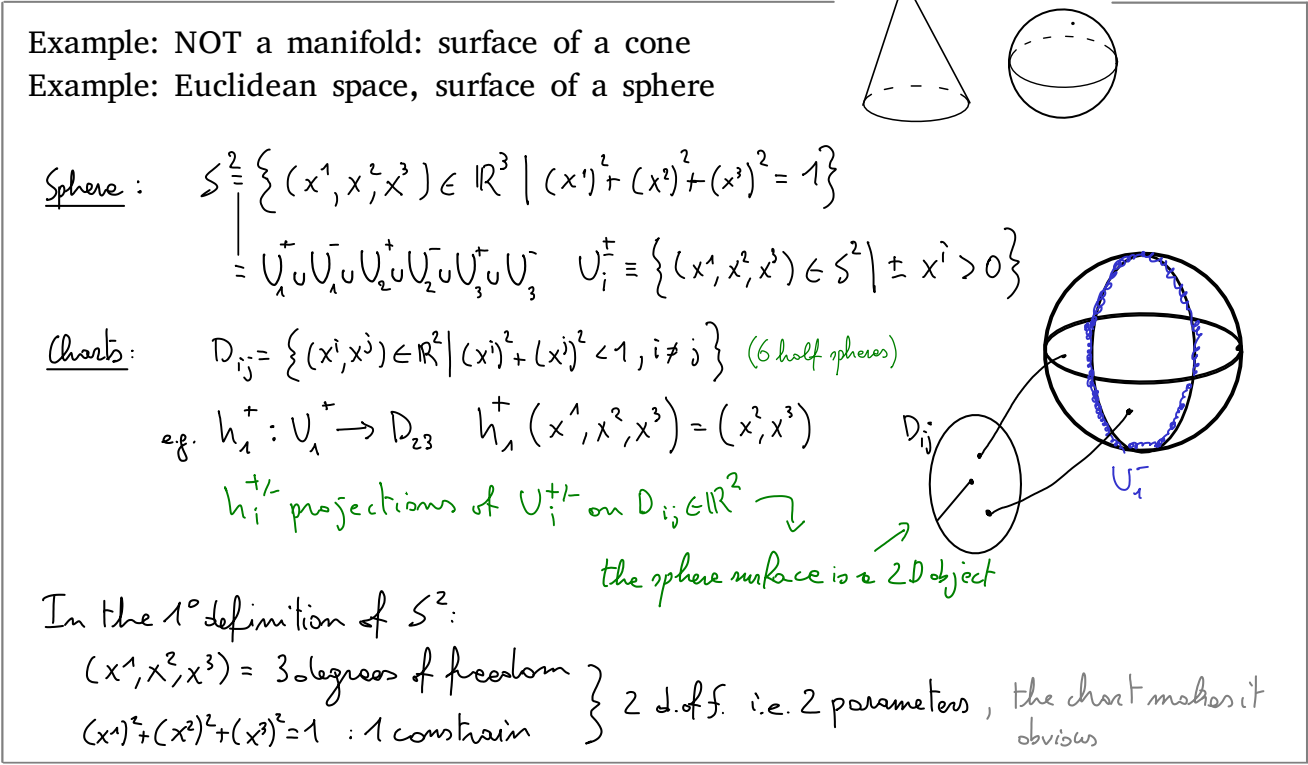 Example: NOT a manifold: surface of a cone
Example: Euclidean space, surface of a sphere
Sphere : S² ≡ { (x¹, x², x³) ∈ ℝ³ | (x¹)² + (x²)² + (x³)² = 1 }
= U₁⁺ ∪ U₁⁻ ∪ U₂⁺ ∪ U₂⁻ ∪ U₃⁺ ∪ U₃⁻ Uᵢ± ≡ { (x¹, x², x³) ∈ S² | ± xⁱ > 0 }
Charts : Dᵢⱼ = { (xⁱ, xʲ) ∈ ℝ² | (xⁱ)² + (xʲ)² < 1, i ≠ j } (6 half spheres)
e.g. h₁⁺ : U₁⁺ → D₂₃ h₁⁺ (x¹, x², x³) = (x², x³)
Dᵢⱼ
U₁⁻
hᵢ+/- projections of Uᵢ+/- on Dᵢⱼ ∈ ℝ²
the sphere surface is a 2D object
In the 1° definition of S²:
(x¹, x², x³) = 3 degrees of freedom
(x¹)² + (x²)² + (x³)² = 1 : 1 constrain
} 2 d.of f. i.e. 2 parameters, the chart makes it
obvious